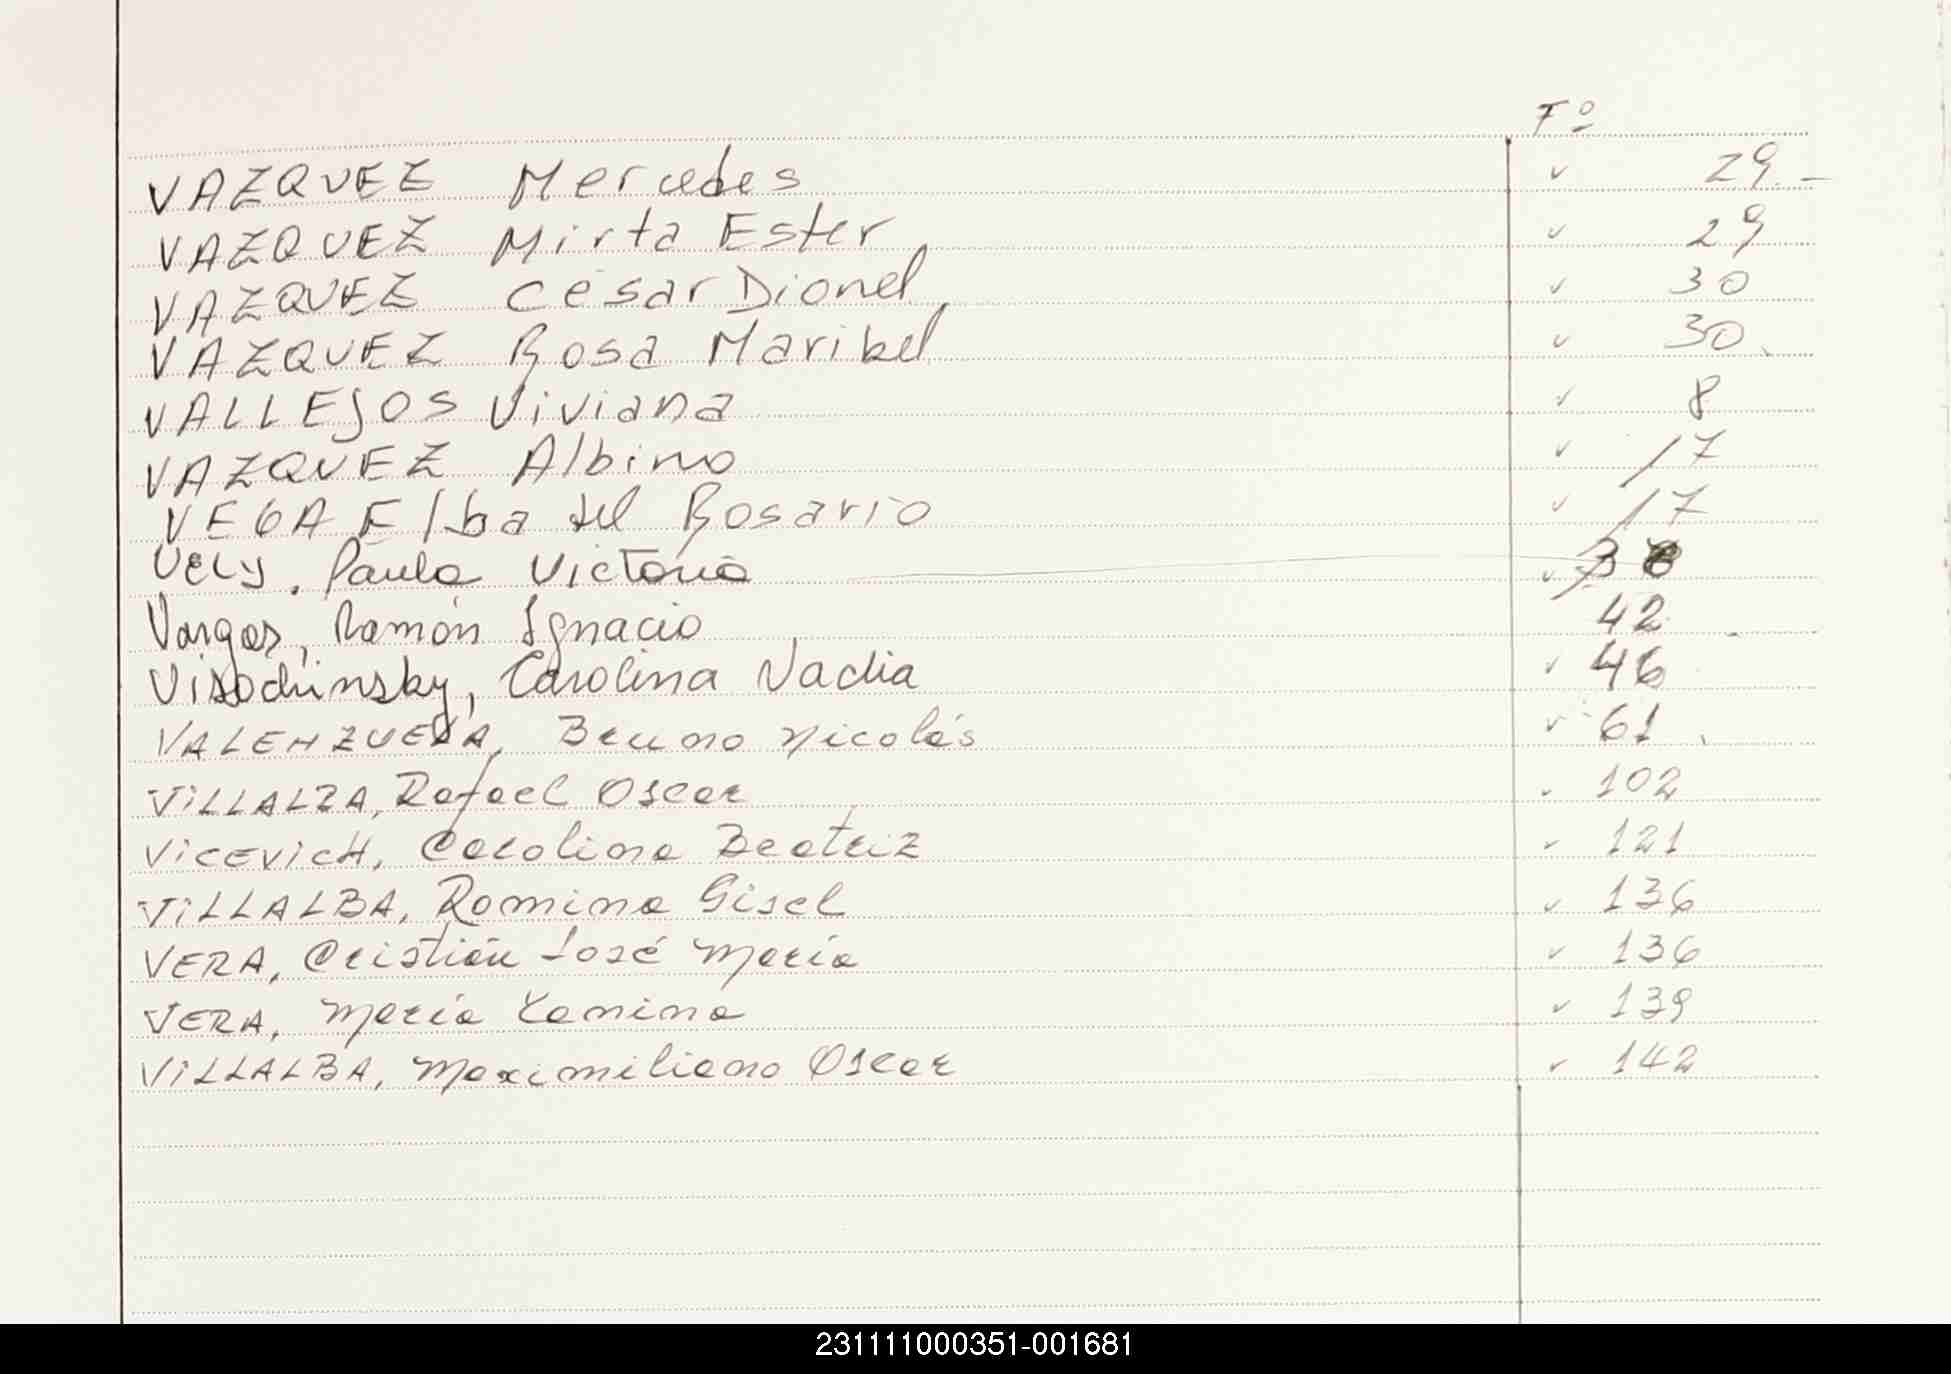 Fº
VAZQUEZ Mercedes ✓ 29.-
VAZQUEZ Mirta Ester ✓ 29
VAZQUEZ César Dionel, ✓ 30
VAZQUEZ Rosa Maribel ✓ 30
VALLEJOS Viviana ✓ 8
VAZQUEZ Albino ✓ 17
VEGA Elba del Rosario ✓ 17
Vely. Paula Victoria ✓
Vargas, Ramón Ignacio 42
Visochinsky, Carolina Nadia ✓ 46
VALENZUELA, Bruno Nicolás ✓ 61
VILLALBA, Rafael Oscar 102
VICEVICH, Carolina Beatriz ✓ 121
VILLALBA, Romina Gisel ✓ 136
VERA, Cristián José María ✓ 136
VERA, María Yanina ✓ 139
VILLALBA, Maximiliano Oscar ✓ 142
231111000351-001681